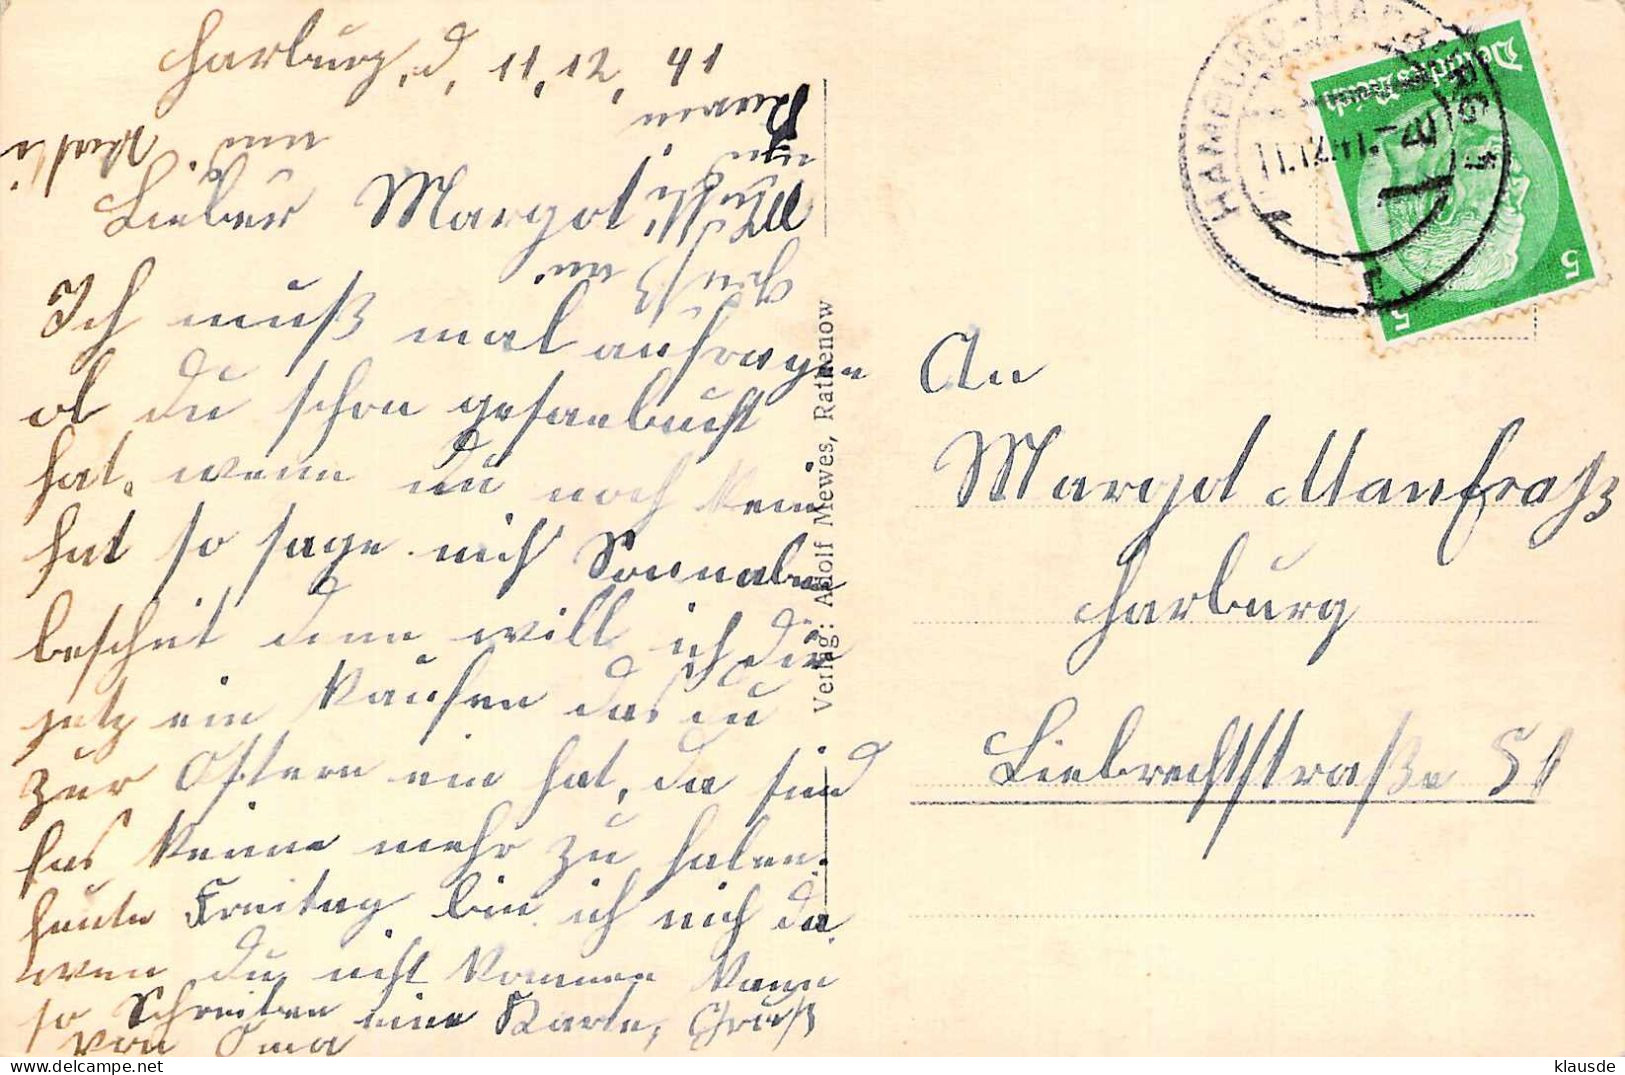 Harburg, d. 11.12.41
Lieber Margot
Ich muß mal anfragen
ob Du schon gesanbuch
hat, wenn Du noch kein
hat so sage mich Sonnaben
bescheit denn will ich Dir
jetz ein kaufen das Du
zur Ostern ein hat, da sind
fas keine mehr zu haben.
heute Freitag bin ich nich da
wen Du nich kommen kann
so Schreiben eine Karte, Gruß
von Oma
Gruß an
Mutti
Karin
un
un
Verlag: Adolf Mewes, Rathenow
HAMBURG-HARBURG 1
Deutsches Reich
5
5
An
Margot Manfraß
Harburg
Liebrechtstraße 51
klausde